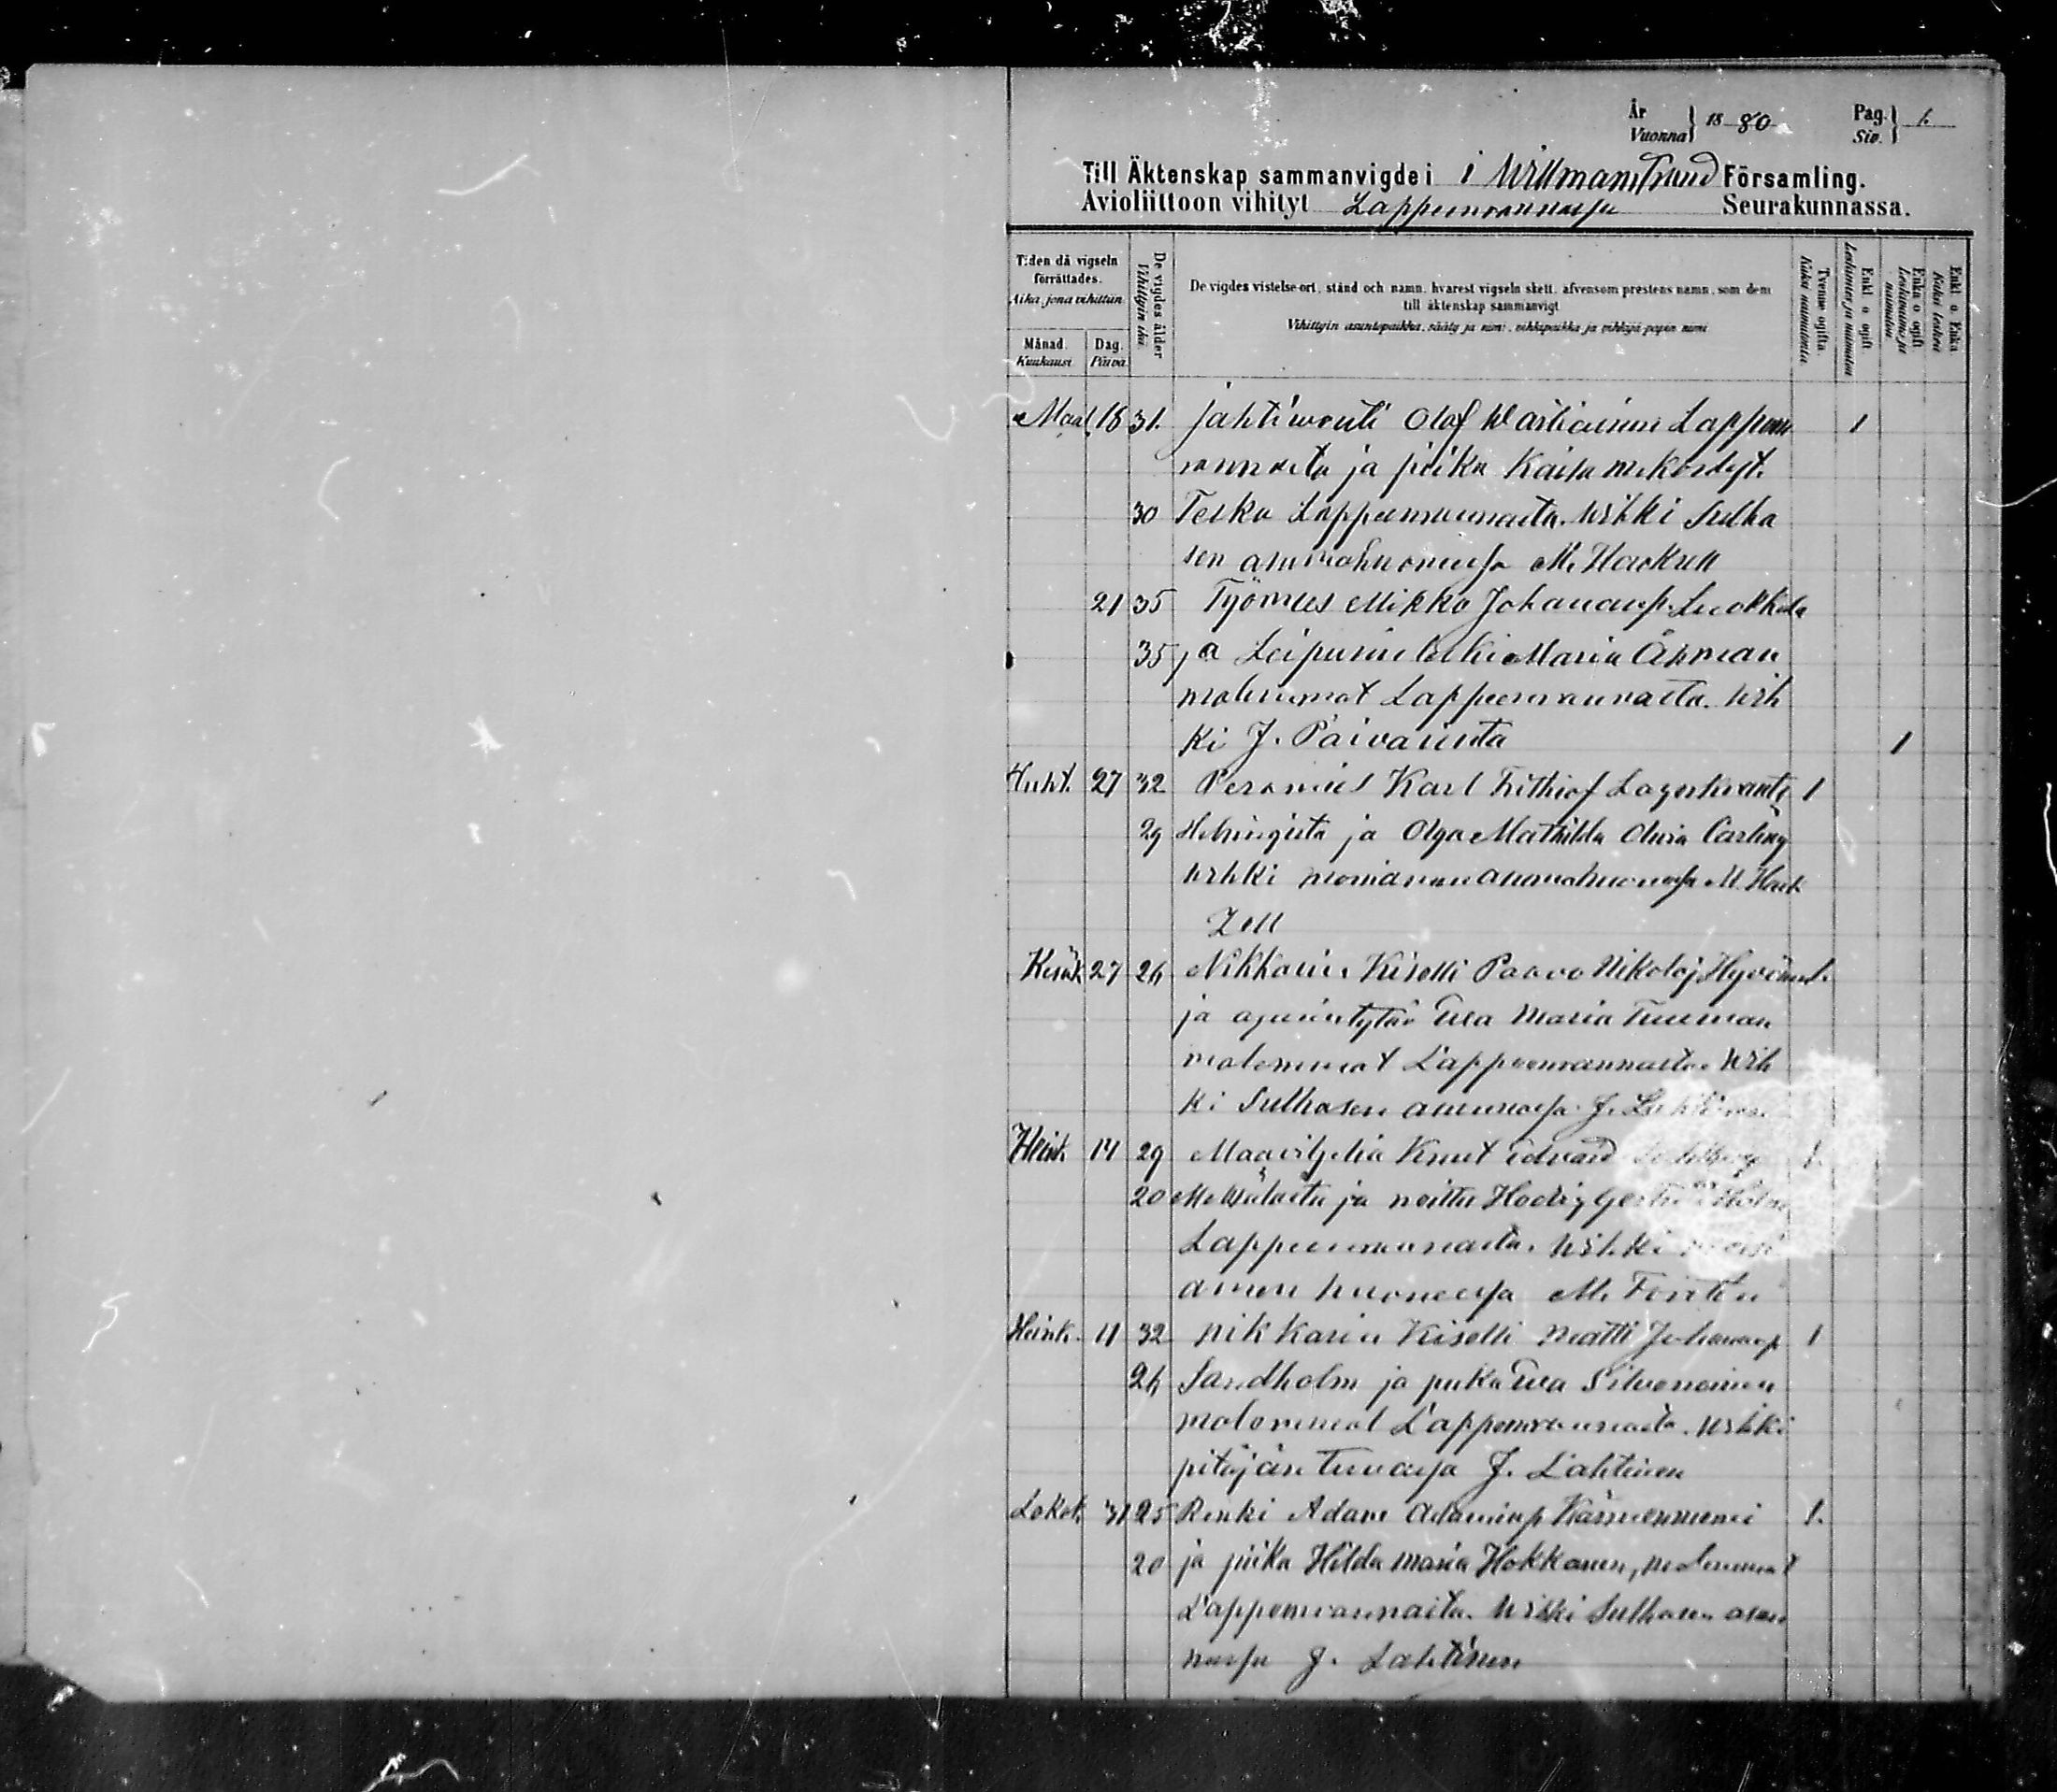 År
Vuonna } 18 80 Pag.
Siv. } 1.
Till Äktenskap sammanvigde i i Willmanstrand Församling.
Avioliittoon vihityt Lappeenrannassa Seurakunnassa.
Tiden då vigseln
förrättades.
Aika, jona vihittiin.
Månad.
Kuukausi
Dag.
Päivä.
De vigdes ålder
Vihittyin ikä.
De vigdes vistelse-ort, stånd och namn, hvarest vigseln skett, äfvensom prestens namn, som dem
till äktenskap sammanvigt
Vihittyin asuntopaikka, sääty ja nimi, vihkipaikka ja vihkijä-papin nimi
Tvenne ogifta.
Kaksi naimatonta.
Enkl. o. ogift.
Leskimies ja naimaton
Enka o. ogift.
Leskivaimo ja
naimaton
Enkl. o. Enka.
Kaksi leskeä
Maal. 18 31. jahtiwouti Olof Wartiainen Lappeen 1
rannasta ja piika Kaisa
30 Teska Lappeenrannasta. Wihki Sulha
sen asuinhuoneessa M. Hackzell
21 35 Työmies Mikko Johananp. Luokkola
35 ja Leipurin leski Maria Åkman
molemmat Lappeenrannasta. Wih
ki J. Päivärinta 1
Huht. 27 32 Karl Frithiof Lagerkrantz 1
29 Helsingistä ja Olga Mathilda Olivia Carling
Wihki morsiamen asuinhuoneessa M. Hack
zell
Kesäk. 27 26 Nikkarin Kiselli Paavo Nikolaj Hyvönen 1.
ja ajurintytär Eva Maria Tuuman
molemmat Lappeenrannasta. Wih
ki Sulhasen asunnossa J. Lahtinen
Heink. 14 29 Maaviljeliä Knut Edvard 1.
20 ja neitsy Hedvig
Lappeenrannasta. Wihki morsi
amen huoneessa M.
Heink. 11 32 Nikkarin Kiselli Matti Johananp 1
26 Sandholm ja piika Eva Silvonoinen
molemmat Lappeenrannasta. Wihki
pitäjän tuvassa J. Lahtinen
Lokak. 31 25 Renki Adam Adaminp Kärmenniemi 1.
20 ja piika Hilda Maria Hokkanen, molemmat
Lappeenrannasta. Wihki Sulhasen asun
nossa J. Lahtinen